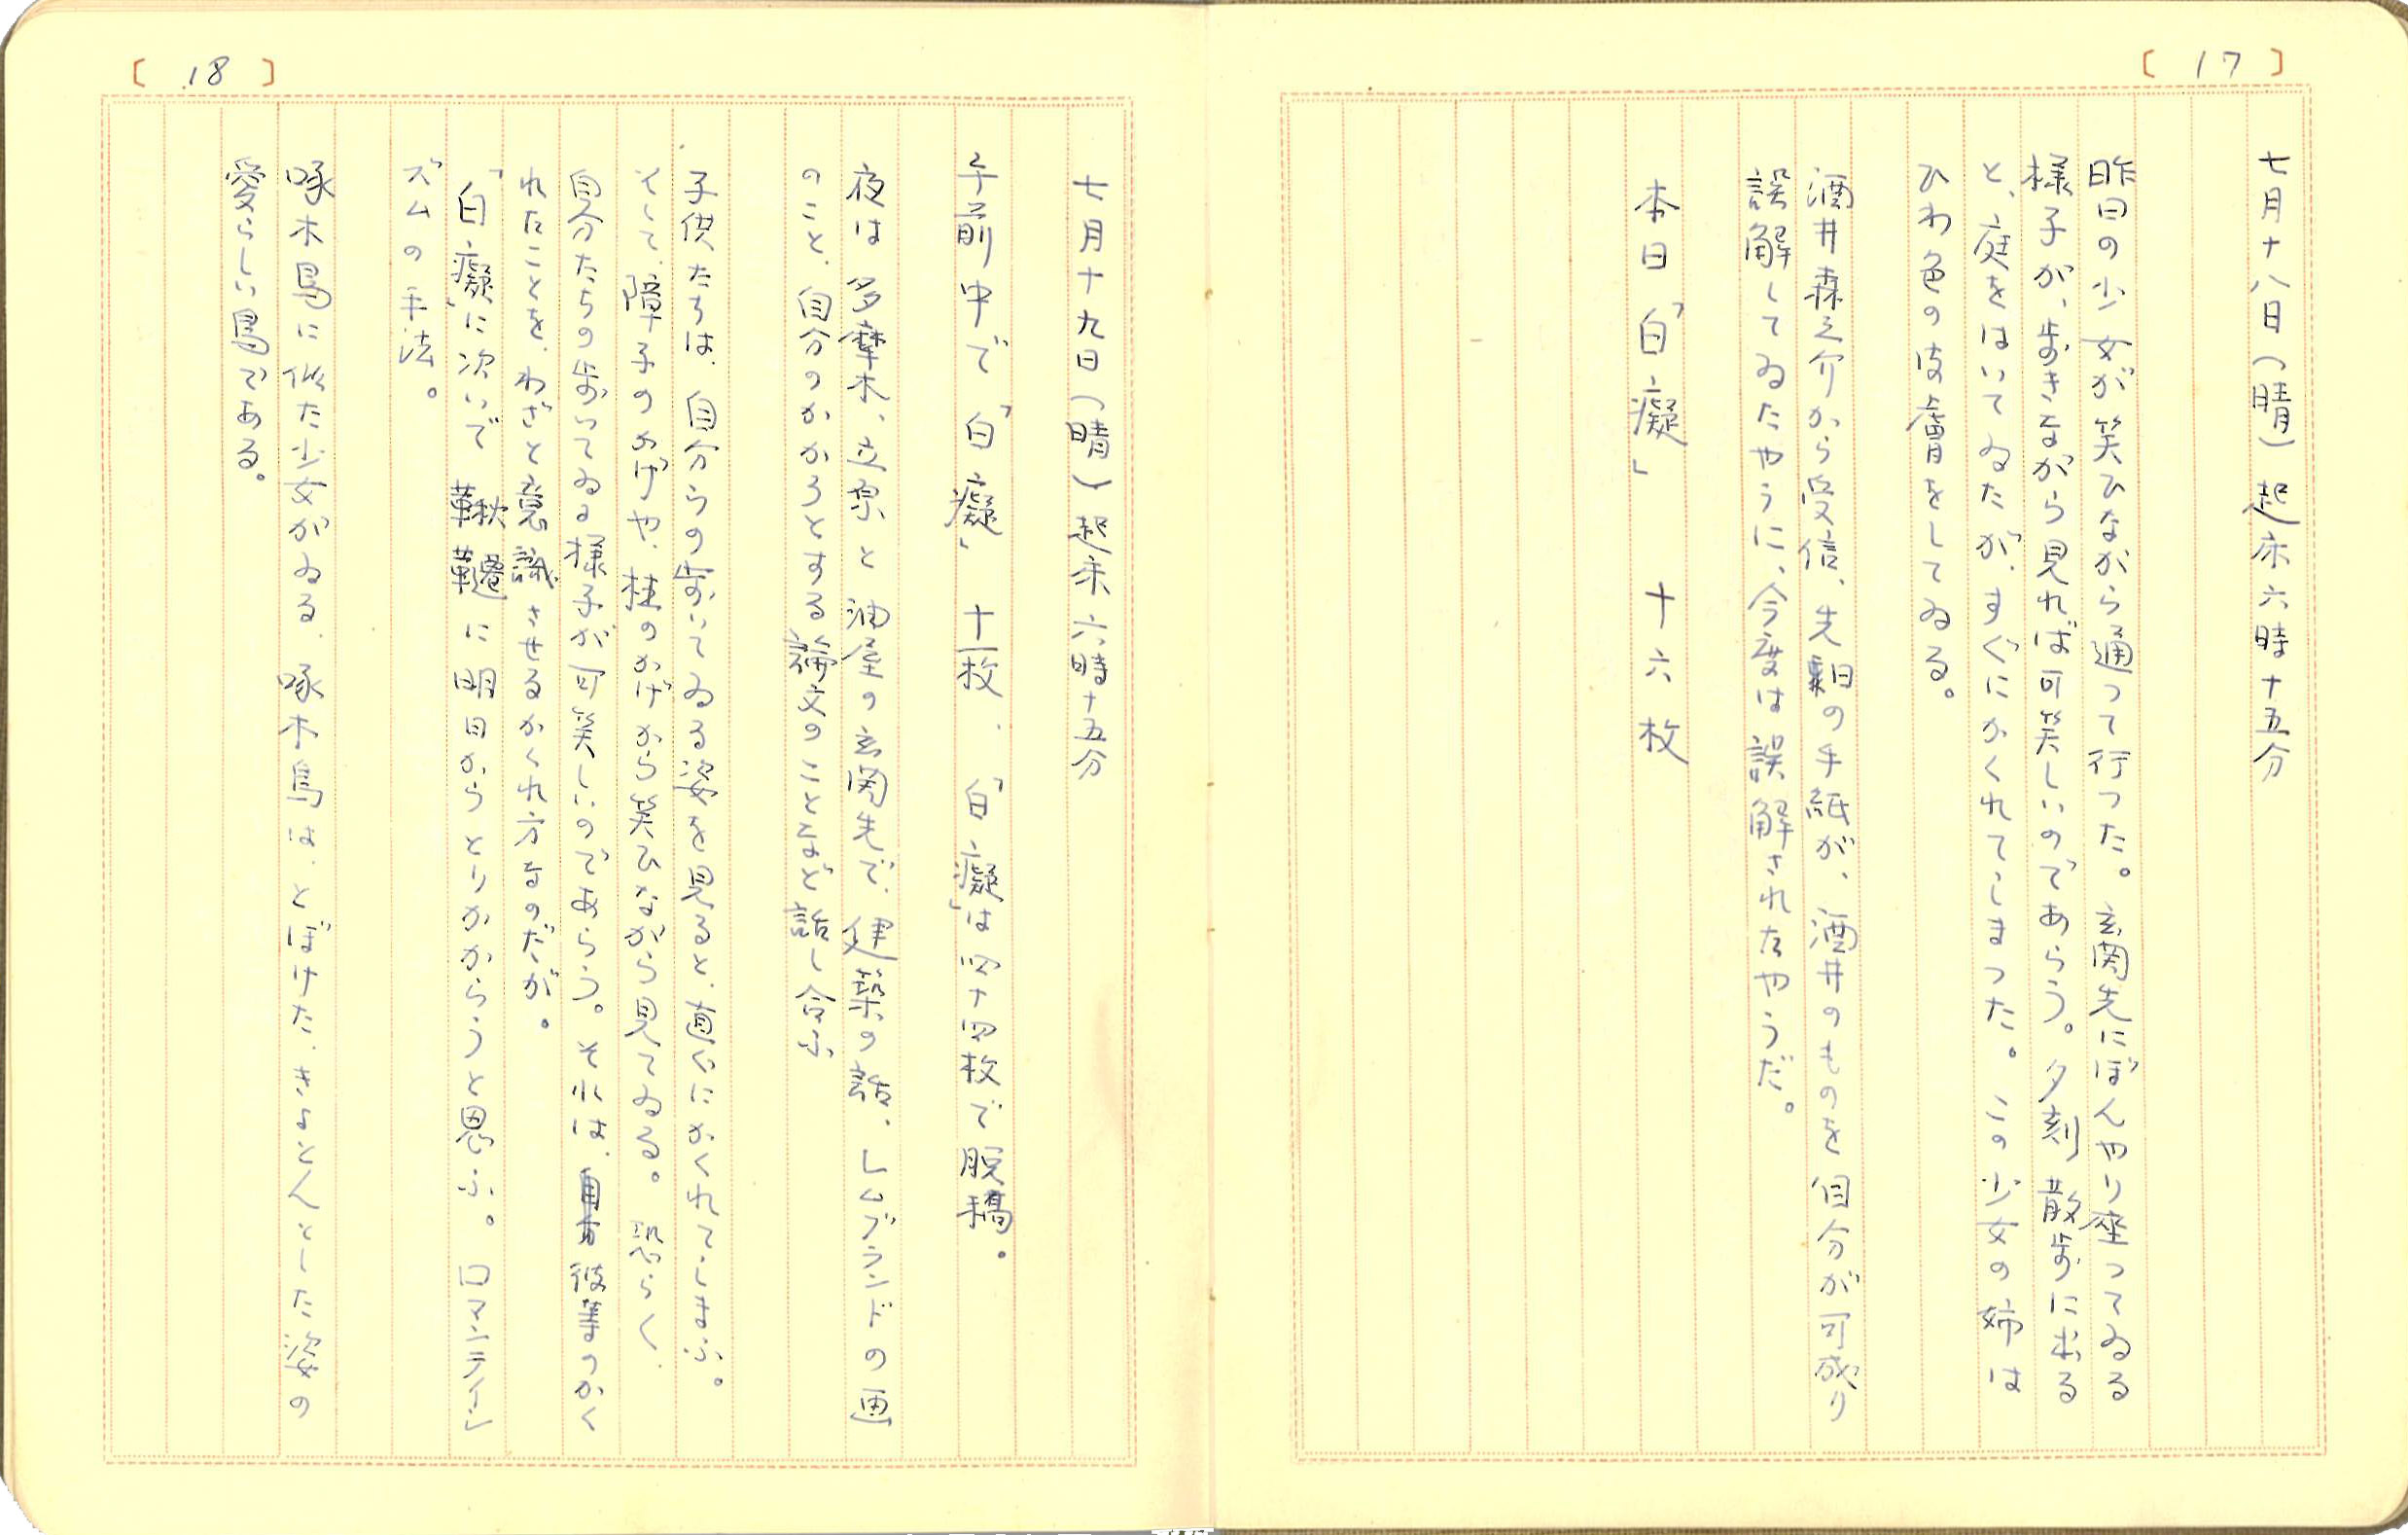 〔17〕
七月十八日(晴)起床六時十五分
昨日の少女が笑ひながら通つて行つた。玄関先にぼんやり座つてゐる
様子が、歩きながら見れば可笑しいのであらう。夕刻散歩に出る
と、庭をはいてゐたが、すぐにかくれてしまつた。この少女の姉は
ひわ色の皮膚をしてゐる。
酒井森之介から受信、先日の手紙が、酒井のものを自分が可成り
誤解してゐたやうに、今度は誤解されたやうだ。
本日「白癡」 十六枚
〔18〕
七月十九日(晴)起床六時十五分
午前中で「白癡」十一枚、「白癡」は四十四枚で脱稿。
夜は多摩木、立原と油屋の玄関先で、建築の話、レムブランドの画
のこと、自分のかかうとする論文のことなど話し合ふ
子供たちは、自分らの歩いてゐる姿を見ると、直ぐにかくれてしまふ。
そして、障子のかげや、桂のかげから笑ひながら見てゐる。恐らく、
自分たちの歩いてゐる様子が可笑しいのであらう。それは、彼等のかく
れたことを、わざと意識させるかくれ方なのだが。
「白癡」に次いで鞦韆に明日からとりかからうと思ふ。ロマンティシ
ズムの手法。
啄木鳥に似た少女がゐる、啄木鳥は、とぼけた、きよとんとした姿の
愛らしい鳥である。